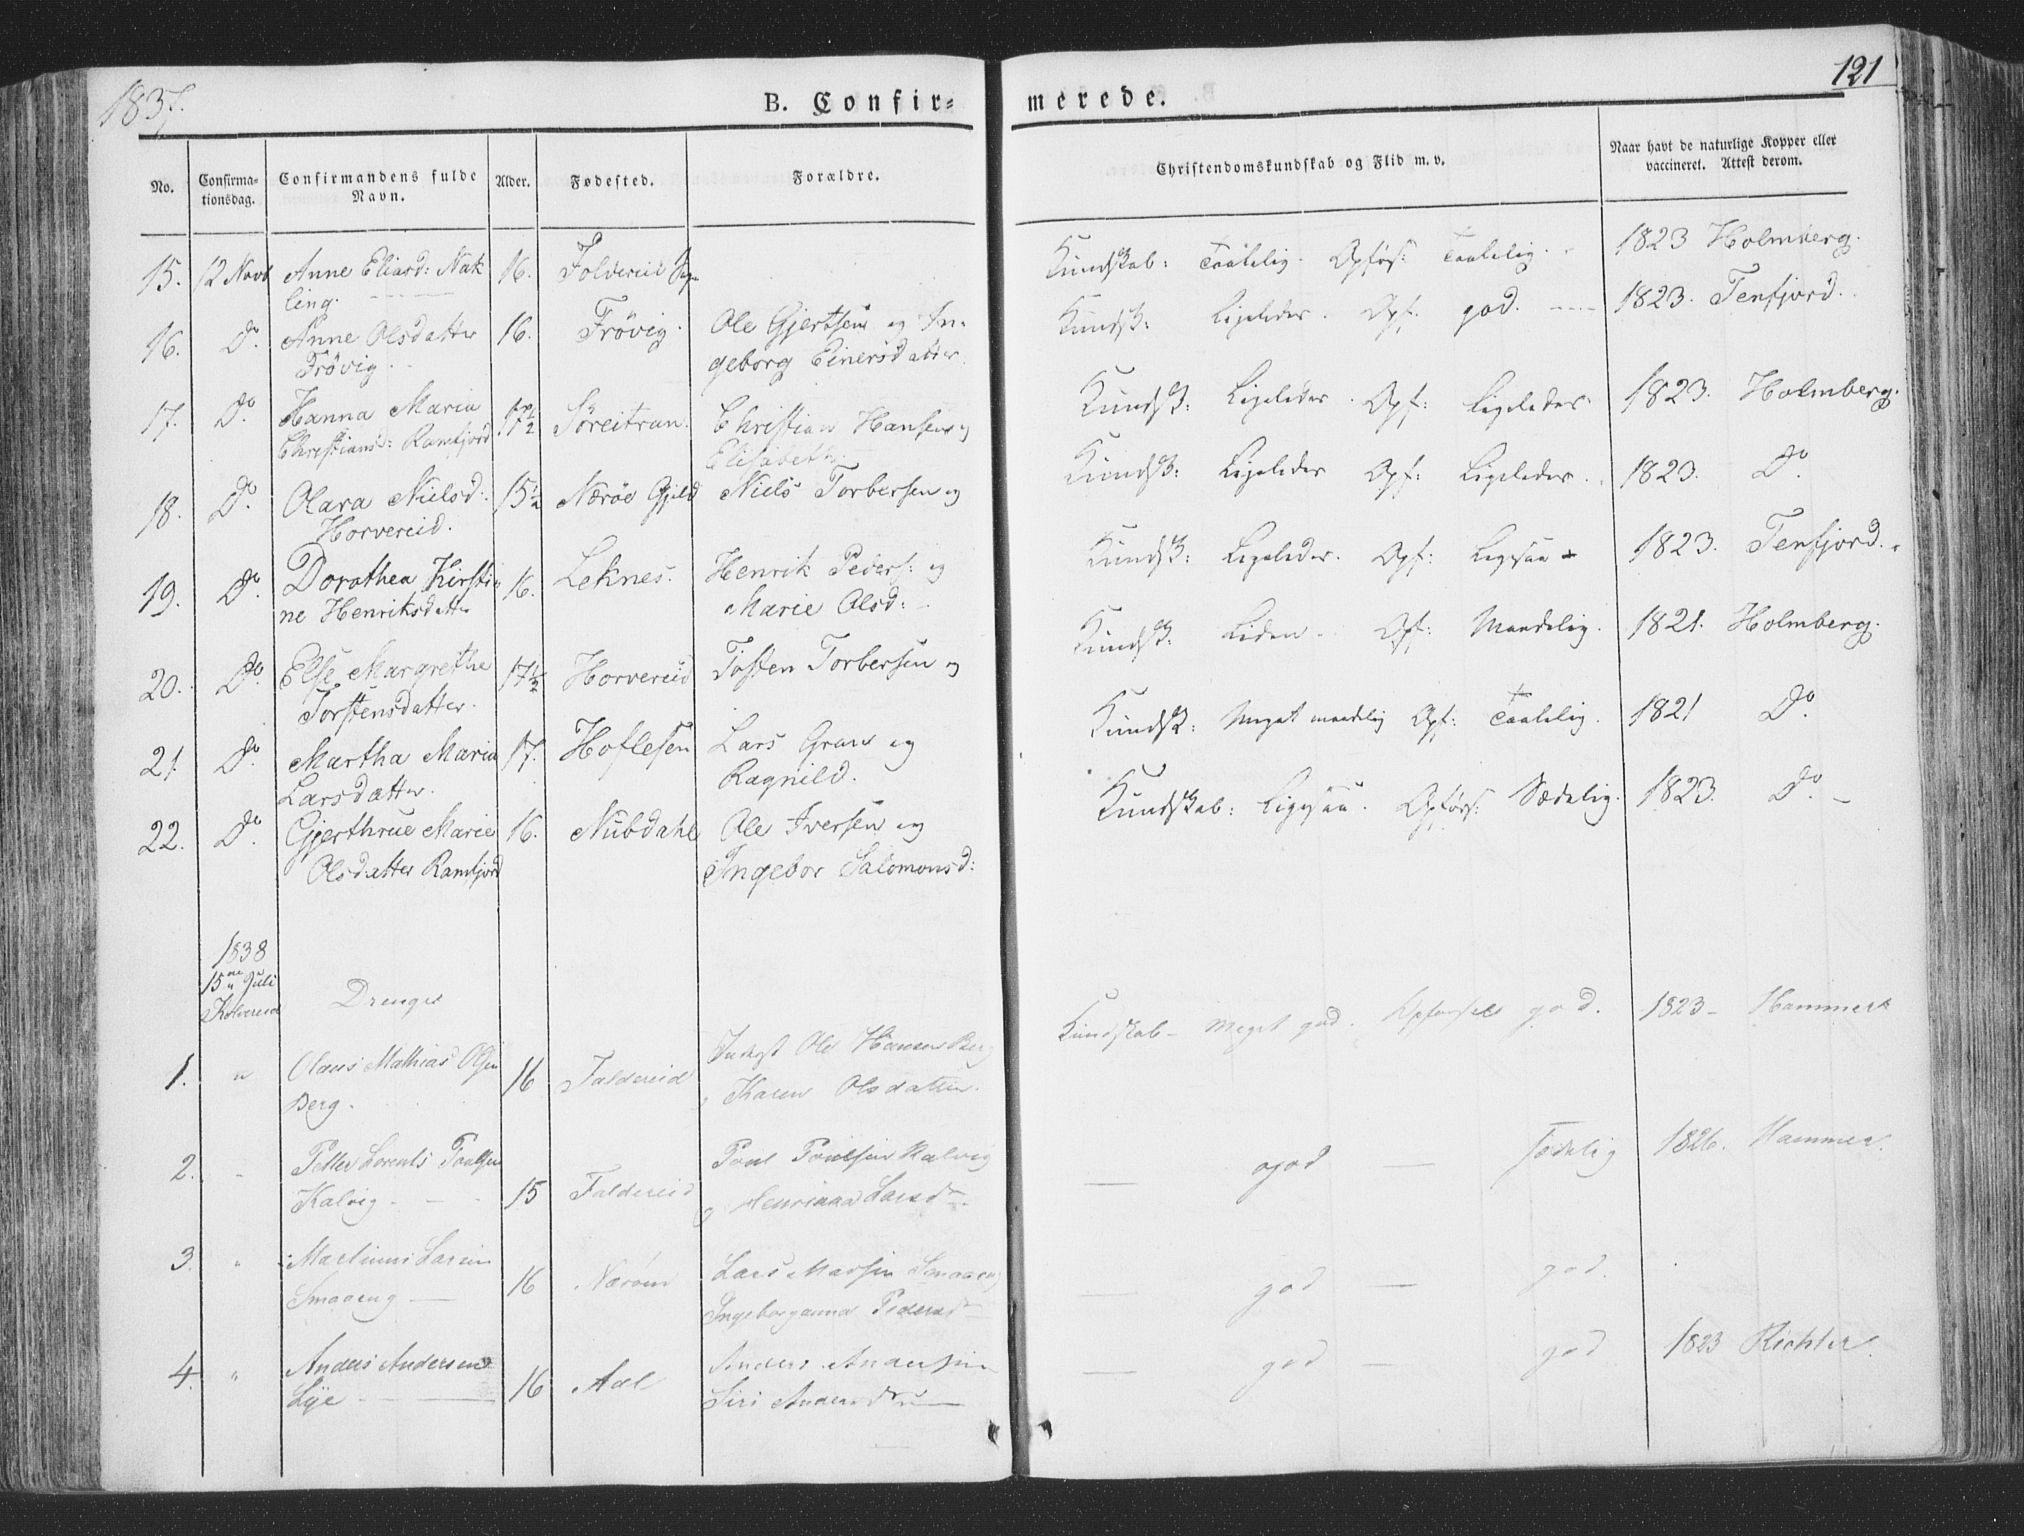 1837.
121
B. Confirmerede.
No. | Confirmationsdag. | Confirmandens fulde Navn. | Alder. | Fødested. | Forældre. | Christendomskundskab og Flid m. v. | Naar havt de naturlige Kopper eller vaccineret. Attest derom.
15. 12 Novb Anne Eliasd: Nakling. 16. Foldereid Sogn Kundskab: Taalelig. Opførs: Taalelig. 1823 Holmberg.
16. Do. Anne Olsdatter Frövig. 16. Frövig. Ole Gjertsen og Ingeborg Einersdatter. Kundsk: Ligeledes. Opf: god. 1823. Tenfjord.
17. Do. Hanna Maria Christiansd: Ramfjord 17½ Söreitran. Christian Hansen og Elisabeth. Kundsk: Ligeledes. Opf: Ligeledes. 1823. Holmberg.
18. Do. Olara Nielsd: Horvereid. 15½ Næröe Gjeld Niels Torbersen og Kundsk: Ligeledes Opf: Ligeledes. 1823. Do.
19. Do. Dorothea Kirstine Henriksdatter 16. Leknes. Henrik Peders: og Marie Olsd: Kundsk: Ligeledes. Opf: Ligesaa 1823. Tenfjord.
20. Do. Else Margrethe Torstensdatter. 17½ Horvereid Tosten Torbersen og Kundsk: Liden. Opf: Maadelig. 1821. Holmberg.
21. Do. Martha Maria Larsdatter. 17. Hoflesen Lars Gran og Ragnild. Kundsk: Meget maadelig Opf: Taalelig. 1821 Do.
22. Do. Gjerthrue Marie Olsdatter Ramfjord 16. Nubdahl Ole Iversen og Ingebor Salomonsd: Kundskab: Ligesaa. Opførs: Sædelig. 1823. Do.
1838
15de Juli
Kolvereid
Drenge
1. " Olaus Mathias Olsen Berg. 16 Foldereid Ole Hansen Berg Karen Olsdatter. Kundskab - Meget god. Opførsel god. 1823 - Hammer
2. Petter Lorents Poulsen Kalvig - 15 Foldereid Poul Poulsen Kalvig og Henrikaa Larsdr. — god — sædelig 1826. Hammer.
3. " Martinus Larsen Smaaeng — 16 Næröen Lars Ingeborganna Pedersdr — god — god.
4. " Anders Andersen Lye — 16 Aal Anders Andersen Siri Andersdr — god — god 1823 Richter.